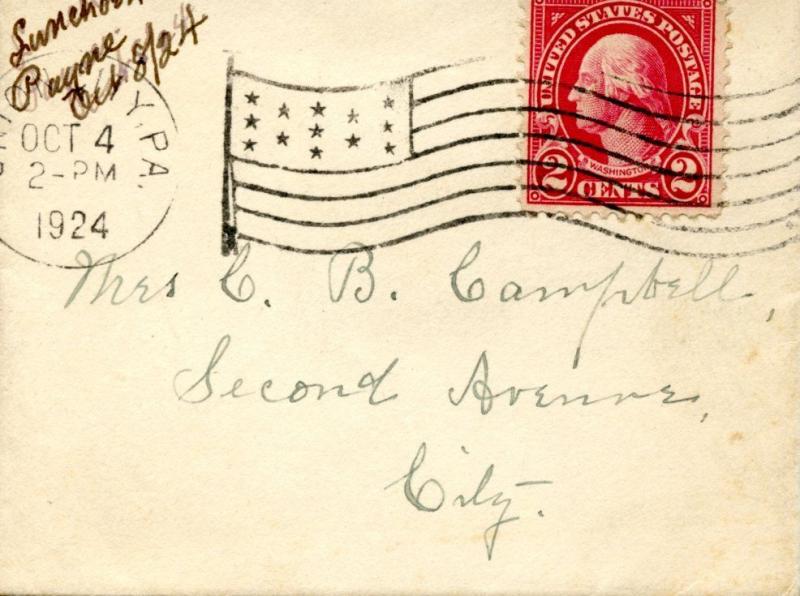 Luncheon
Payne
Oct 8/24
Y, PA.
OCT 4
2-PM
1924
UNITED STATES POSTAGE
WASHINGTON
2 CENTS 2
Mrs C. B. Campbell,
Second Avenue,
City.